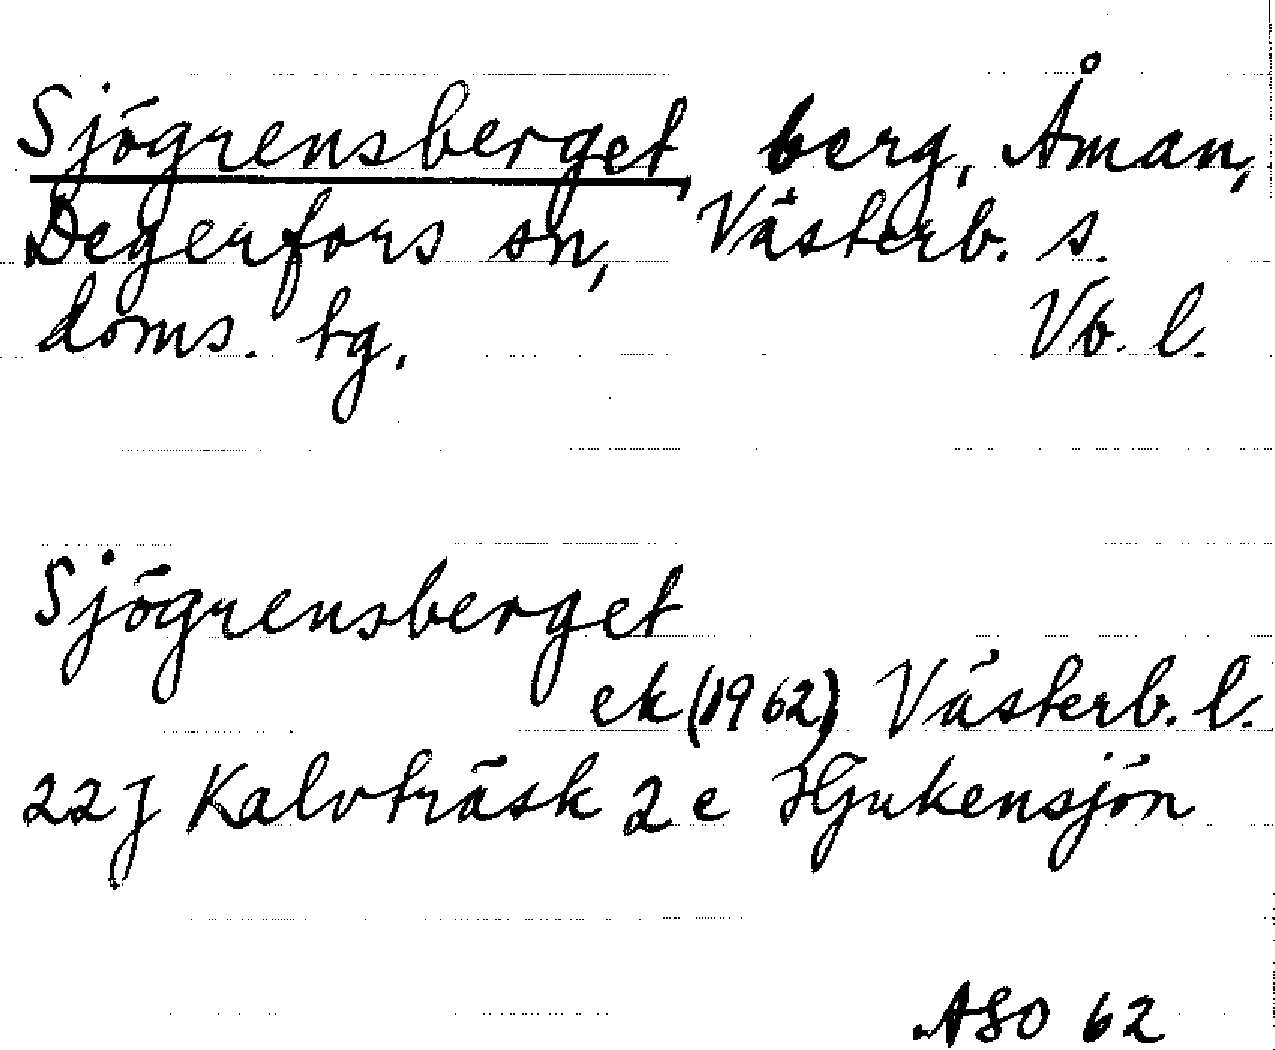 Sjögrensberget, berg, Åman,
Degerfors sn, Västerb. s.
doms. tg. Vb. l.
Sjögrensberget
ek (1962) Västerb. l.
22 J Kalvträsk 2 e Hjukensjön
ASO 62